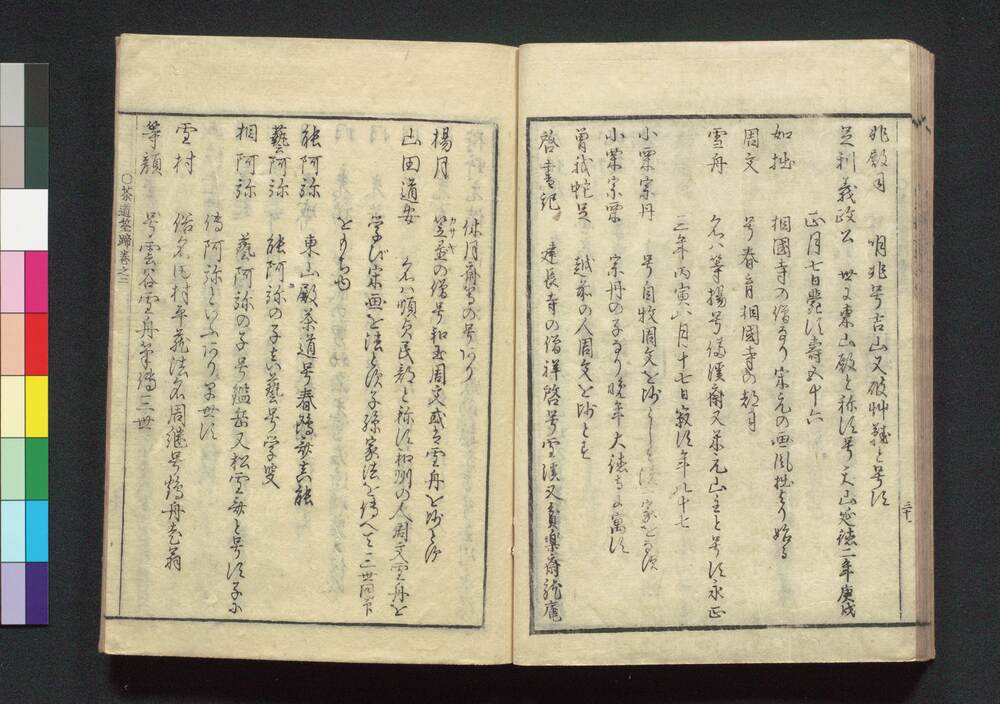 兆殿司　明兆号吉山又破艸鞋と号す
足利義政公　世に東山殿と称す号天山延徳二年庚戌
正月七日薨す壽五十六
如拙　相國寺の僧なり宋元の画風拙より始る
周文　号春育相國寺の都司
雪舟　名ハ等揚号備溪斎又米元山主と号す永正
三年丙寅八月十七日寂す年八十七
小栗宗丹　号自牧周文を師とし後一家をなす
小栗宗栗　宗丹の子なり晩年大徳寺に寓す
曽我蛇足　越前の人周文を師とす
啓書記　建長寺の僧祥啓号雪溪又貧樂斎
三十一
楊月　休月斎等の号あり
笠置の僧号和玉周文或は雪舟を師とす
かさぎ
山田道安　名ハ順貞民部と称す和州の人周文雪舟を
学び宋画を法とす子孫家法を傳へて三世同印
をもちゆ
能阿弥　東山殿茶道号春鴎斎真能
藝阿弥　能阿弥の子真藝号学叟
相阿弥　藝阿弥の子号鑑岳又松雪斎と号す子に
傳阿弥といふあり早世す
雪村　俗名田村平蔵法名周継号鶴舟老翁
等顔　号雲谷雪舟筆傳三世
〇茶道筌蹄巻之三